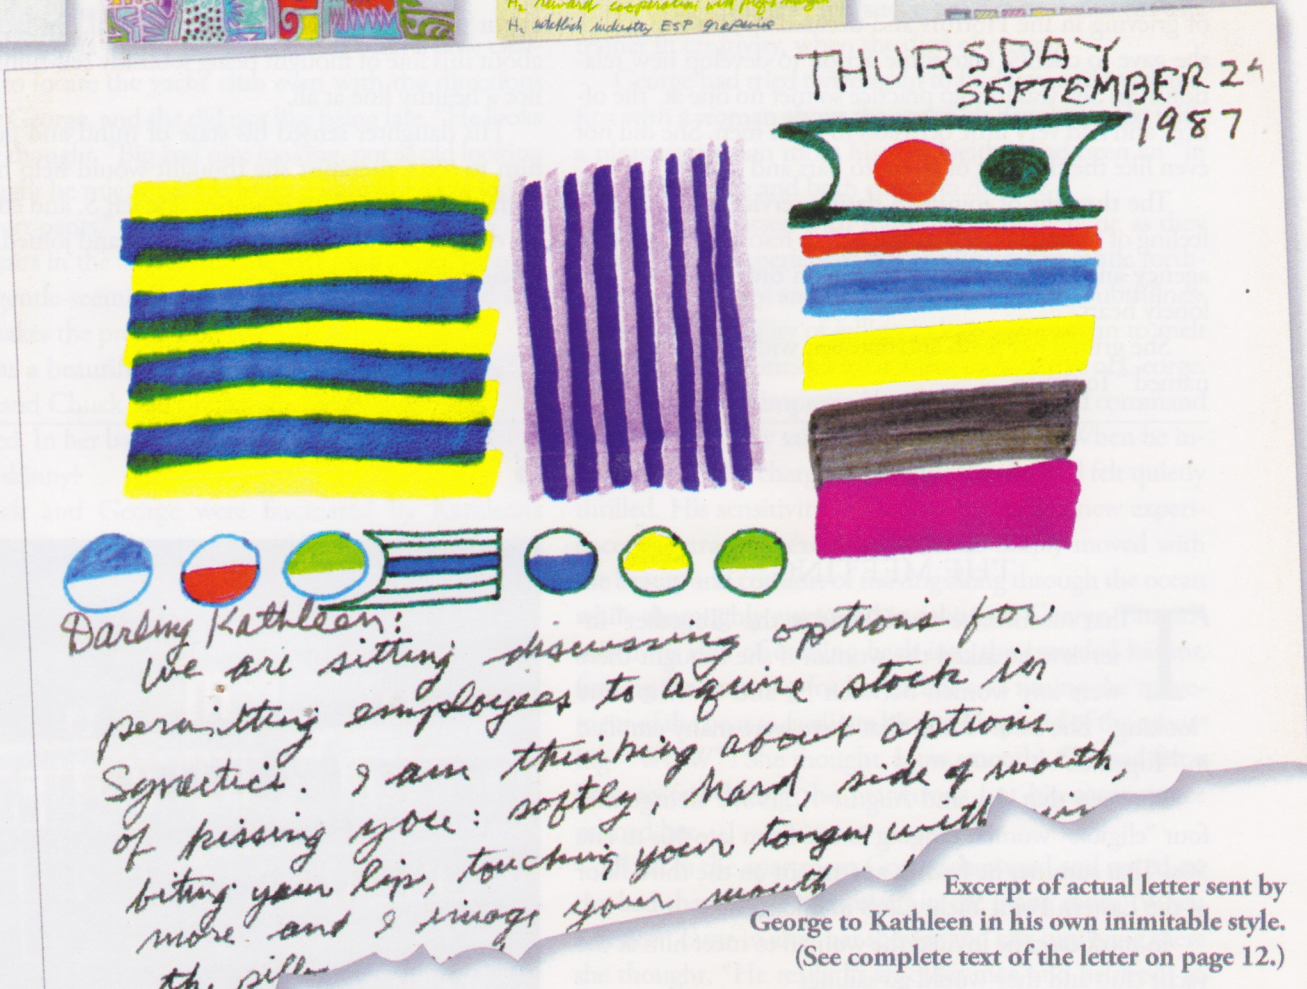 H2 reward cooperation with profit margin
H2 establish industry ESP grapevine
THURSDAY
SEPTEMBER 24
1987
Darling Kathleen:
We are sitting discussing options for
permitting employees to aquire stock in
Synectics. I am thinking about options
of kissing you: softly, hard, side of mouth,
biting your lip, touching your tongue with
more and I image your mouth
the
Excerpt of actual letter sent by
George to Kathleen in his own inimitable style.
(See complete text of the letter on page 12.)